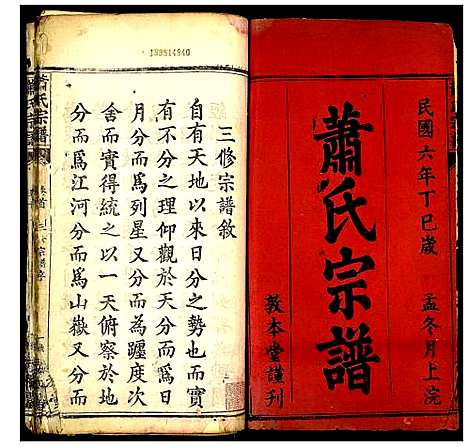 民國六年丁巳歲 孟冬月上浣
蕭氏宗譜
敦本堂謹刊
139314940
三修宗譜敘
自有天地以來日分之勢也而實
有不分之理仰觀於天分而爲日
月分而爲列星又分而為躔度次
舍而實得統之以一天俯察於地
分而爲江河分而爲山嶽又分而
蕭氏宗譜
卷首